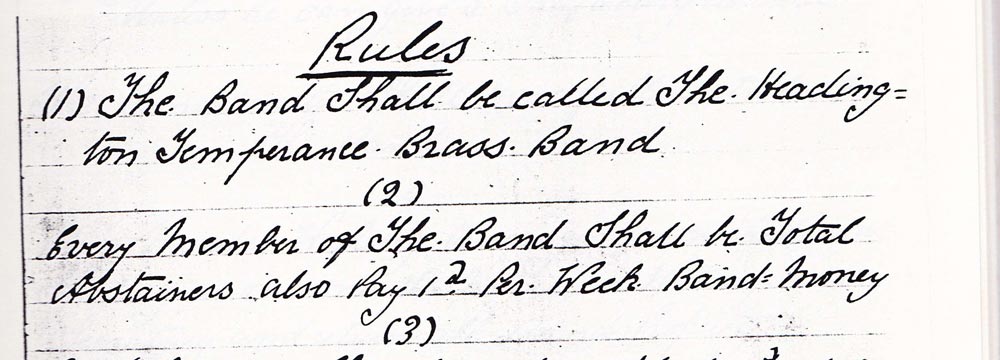 Rules
(1) The Band Shall be called The Heading=
ton Temperance Brass Band
(2)
Every Member of The Band Shall be Total
Abstainers also Pay 1d Per Week Band=Money
(3)